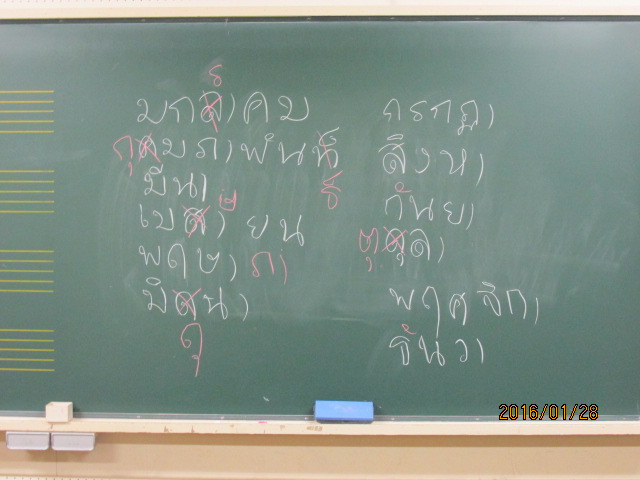 ร
มกลาคม
กุคมภาพันน์
ธ์
มีนา
เมสายน
ษ
พฤษา ภา
มิคนา
ถุ
กรกฎา
สิงหา
กันยา
ตุคุลา
พฤศจิกา
ธันวา
2016/01/28